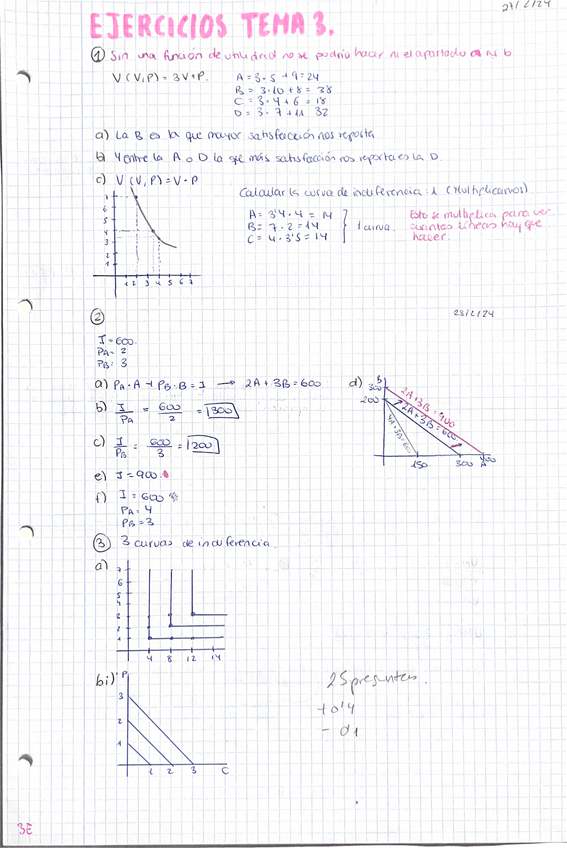 27/2/24
EJERCICIOS TEMA 3.
① Sin una función de utilidad no se podría hacer ni el apartado a ni b
V(V,P) = 3V+P.
A = 3·5 + 9 = 24
B = 3·10 + 8 = 38
C = 3·4 + 6 = 18
D = 3·7 + 11 32
a) La B es la que mayor satisfacción nos reporta
b) Y entre la A o D la que más satisfacción nos reporta es la D.
c) V(V,P) = V·P
Calcular la curva de indiferencia 1 (Multiplicamos)
A = 3'4·4 = 14
B = 7·2 = 14
C = 4·3'5 = 14
1 curva.
Esto se multiplica para ver
cuantas líneas hay que
hacer.
7
6
5
4
3
2
1
1 2 3 4 5 6 7
②
28/2/24
I = 600
PA = 2
PB = 3
a) PA·A + PB·B = I → 2A + 3B = 600
b) I/PA = 600/2 = 300
c) I/PB = 600/3 = 200
d) B
300
200
2A+3B=900
2A+3B=600
4A+3B=600
150 300 450
A
e) I = 900
f) I = 600
PA = 4
PB = 3
③ 3 curvas de indiferencia.
a)
7
6
5
4
3
2
1
4 8 12 14
bi) P
3
2
1
1 2 3 C
25 preguntas.
+0'4
- 0'1
3E